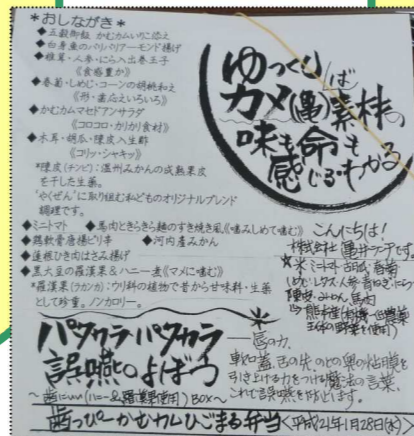 *おしながき*
◆五穀御飯 かむカムいちご添え
◆白身魚のバリバリアーモンド揚げ
◆椎茸・人参・にら入出巻玉子
《食感豊か》
◆春菊・しめじ・コーンの胡桃和え
《形・歯応えいろいろ》
◆かむカムマセドアンサラダ
《コロコロ・カリカリ食材》
◆木耳・胡瓜・陳皮入生酢
《コリッ・シャキッ》
*陳皮(チンピ):温州みかんの成熟果皮
を干した生薬。
"やくぜん"に取り組む私どものオリジナルブレンド
調理です。
◆ミニトマト ◆馬肉ときらきら麺のすき焼き風《噛みしめて噛む》
◆鶏軟骨唐揚ピリ辛 ◆河内産みかん
◆蓮根ひき肉はさみ揚げ
◆黒大豆の羅漢果&ハニー煮《マメに噛む》
*羅漢果(ラカンカ):ウリ科の植物で昔から甘味料・生薬
として珍重。ノンカロリー。
ゆっくり
カメ(亀)ば素材の
味も命も
感じる・わかる
こんにちは!
株式会社 亀井ランチです。
*米 ミニトマト 胡瓜 春菊
しめじ レタス 人参 青ねぎ にら
陳皮 みかん 馬肉
パタカラ パタカラ
誤嚥。よぼう
唇の力、
軟口蓋、舌の先、のどの奥の粘膜を
引き上げる力をつける魔法の言葉、
これで誤嚥を防ぎます。
~歯にいい(ハニー&羅漢果使用)BOX~
歯っぴーかむカムひごまる弁当<平成21年1月28日(水)>